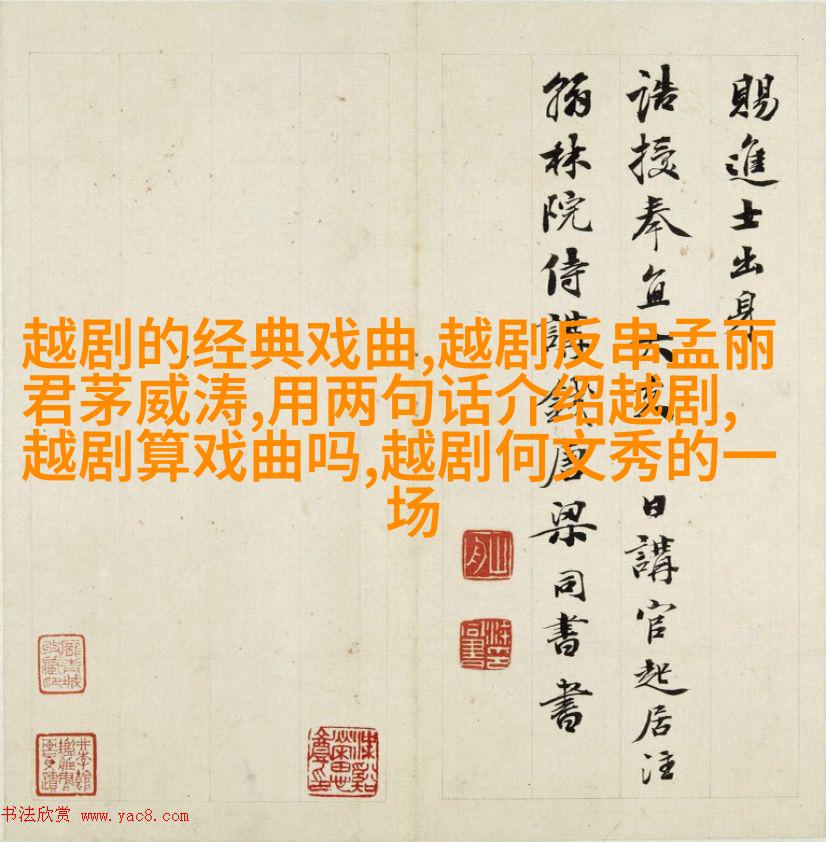 賜進士出身
誥授奉直大夫日講官起居注
翰林院侍講錢唐梁同書書
越剧的经典戏曲,越剧反串孟丽
君茅威涛,用两句话介绍越剧,
越剧算戏曲吗,越剧何文秀的一
场
山舟
书法欣赏 www.yac8.com